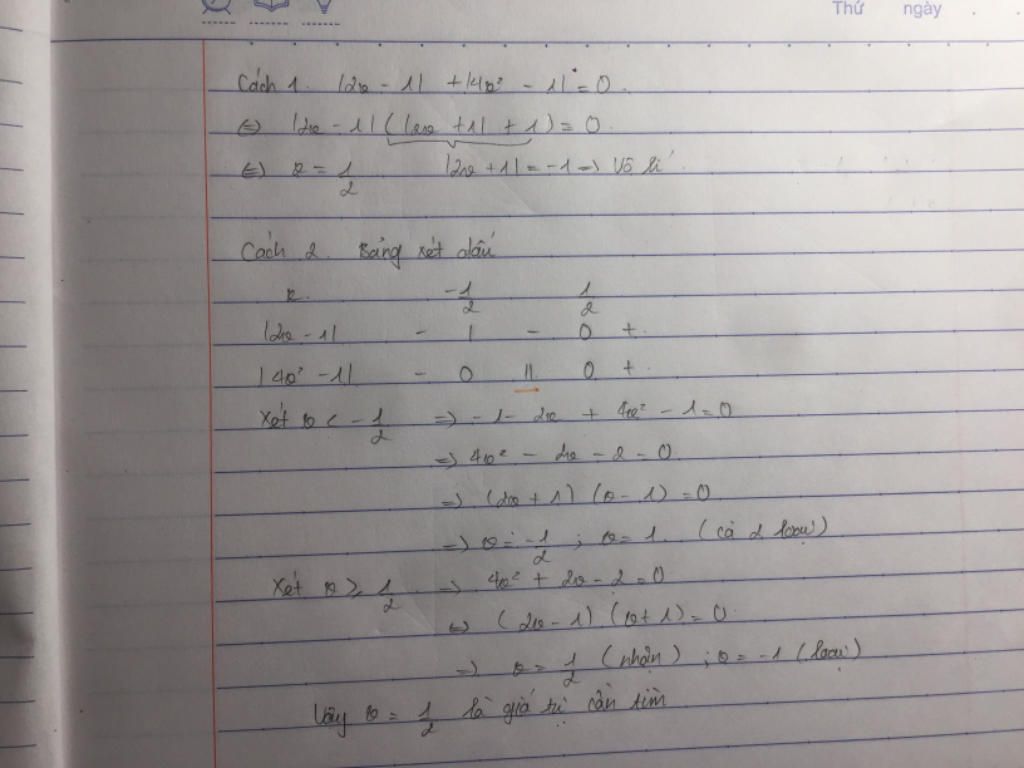 Thứ ngày
Cách 1. |2x - 1| + |4x² - 1| = 0.
⇔ |2x - 1| (|2x + 1| + 1) = 0.
⇔ x = 1/2 |2x + 1| = -1 ⇒ Vô lí
Cách 2. Bảng xét dấu
x -1/2 1/2
|2x - 1| - | - 0 +
|4x² - 1| - 0 || 0 +
Xét x < -1/2 ⇒ -1 - 2x + 4x² - 1 = 0
⇒ 4x² - 2x - 2 = 0
⇒ (2x + 1) (x - 1) = 0
⇒ x = -1/2 ; x = 1. (cả 2 loại)
Xét x ≥ 1/2 ⇒ 4x² + 2x - 2 = 0
⇔ (2x - 1) (x + 1) = 0
⇒ x = 1/2 (nhận) ; x = -1 (loại)
Vậy x = 1/2 là giá trị cần tìm